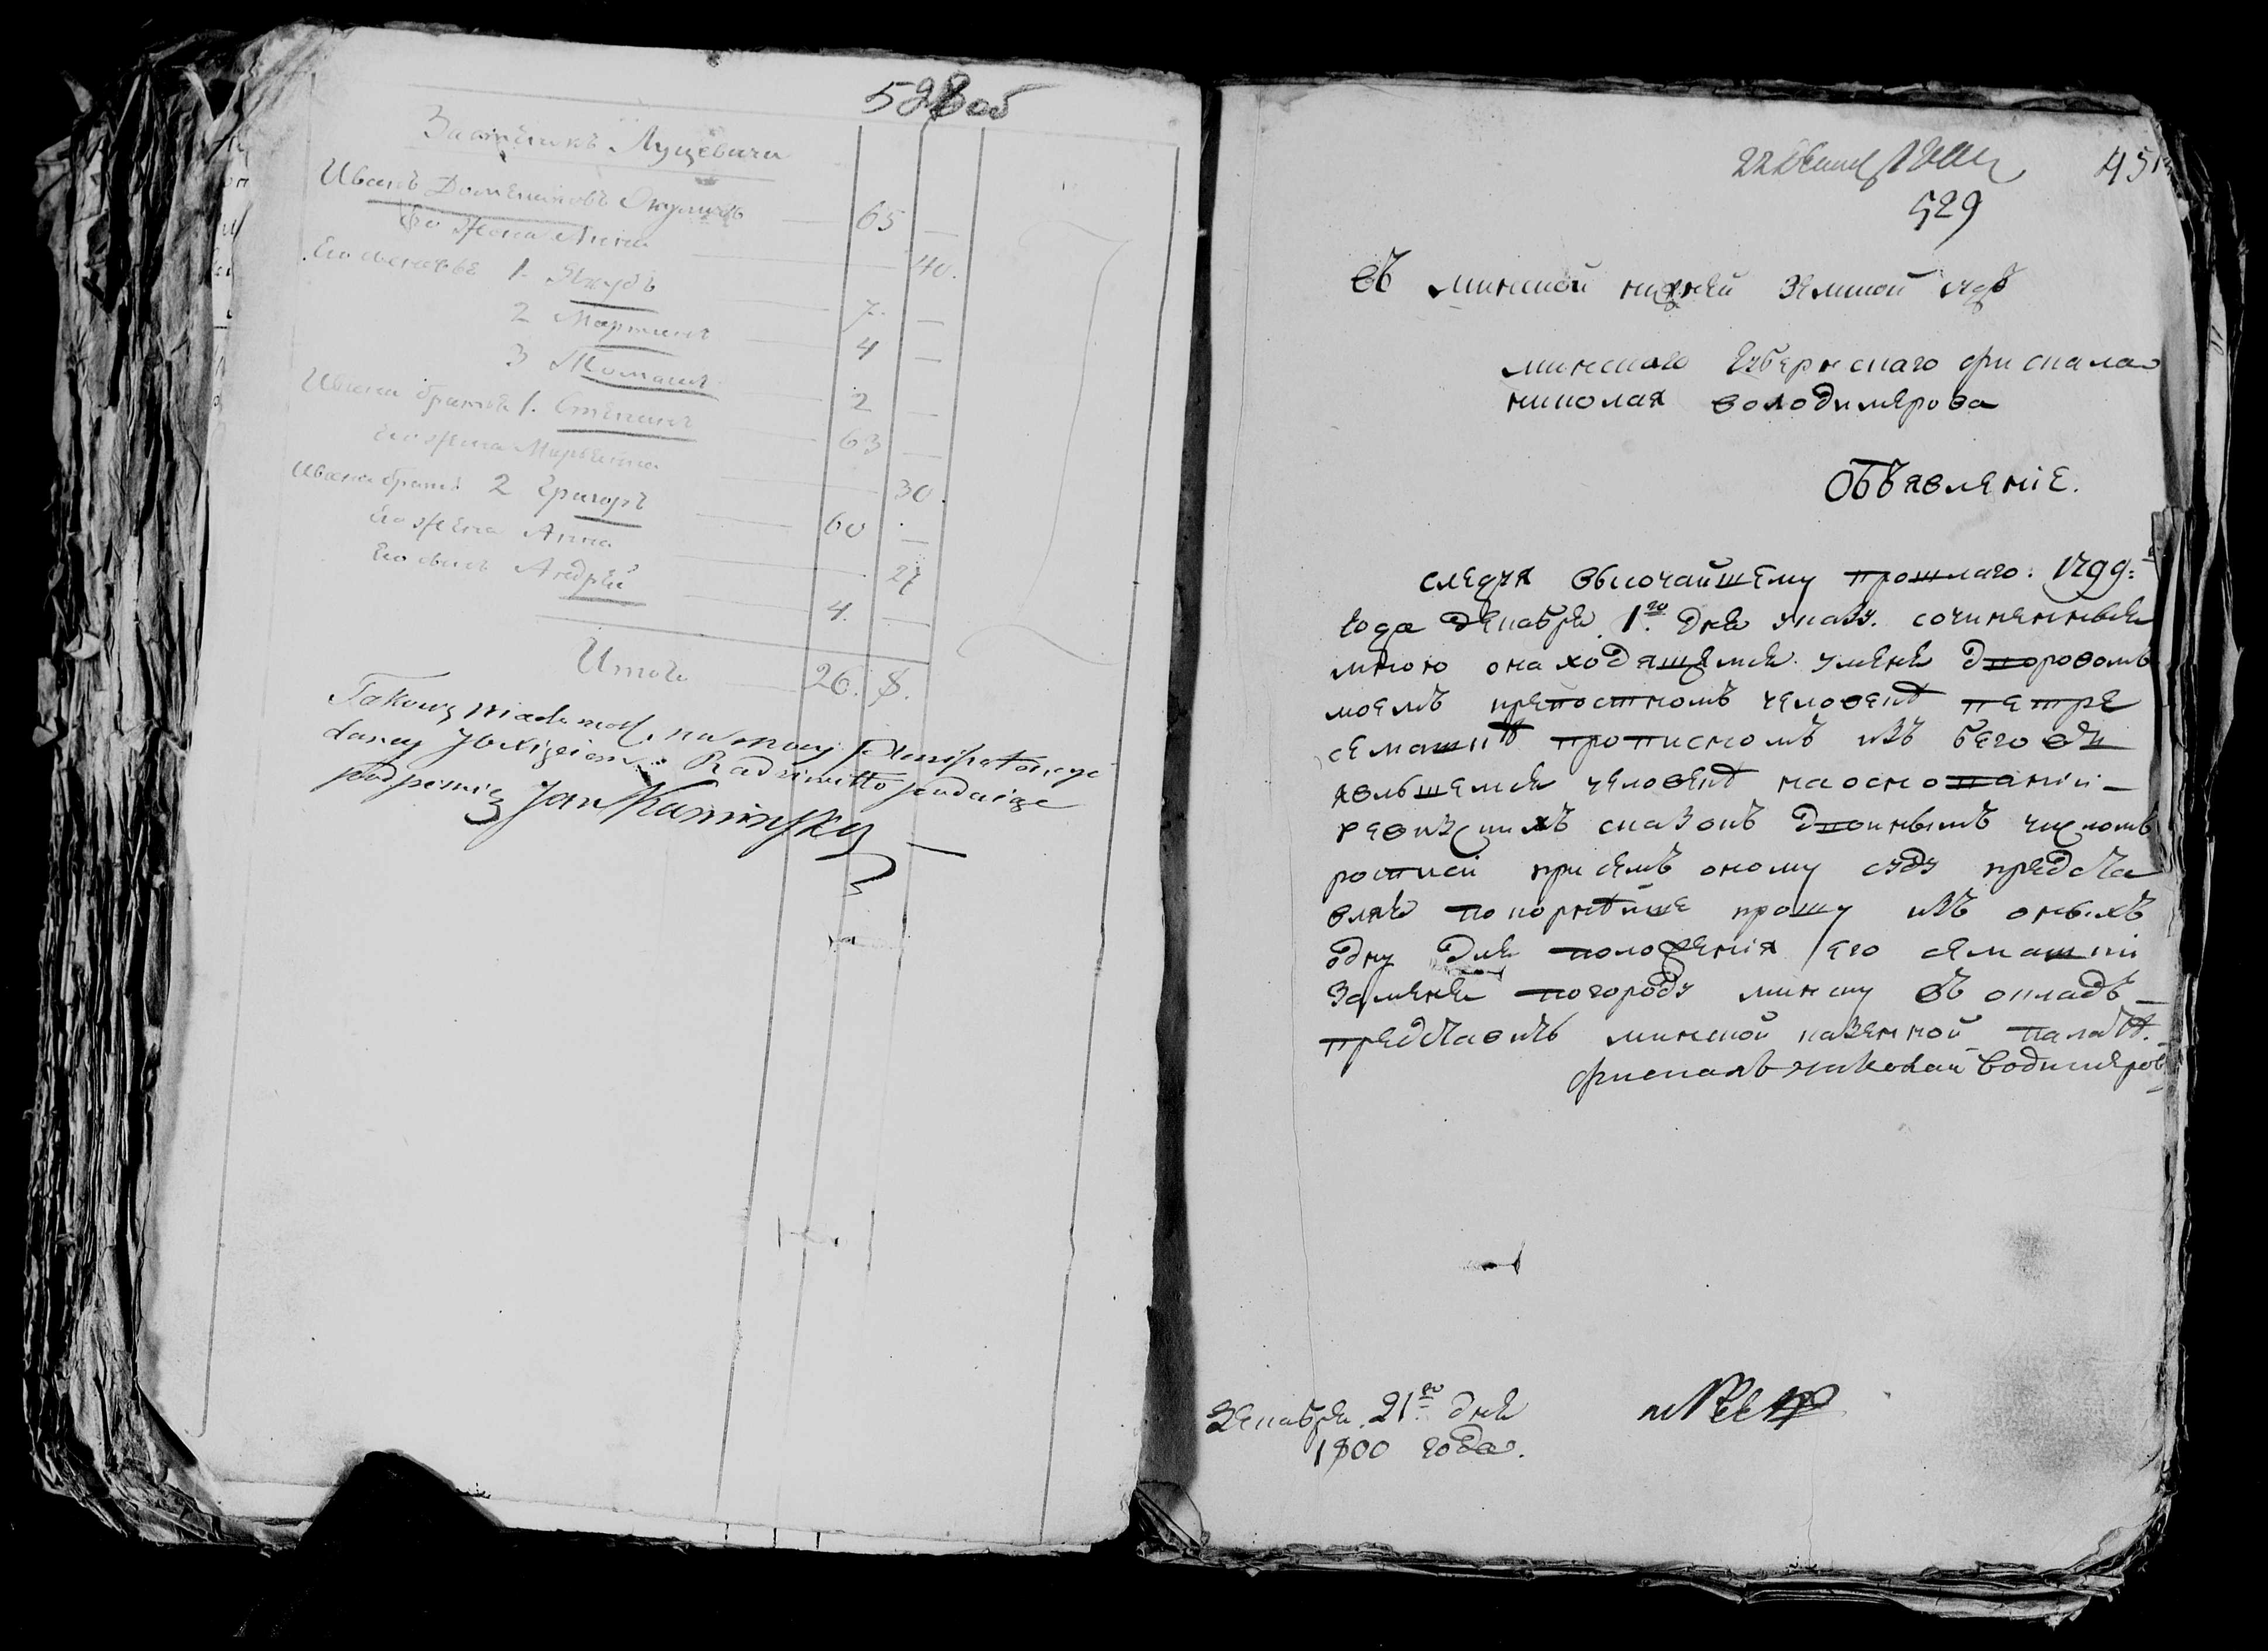 528 об
Застенокъ Луцевичи
Иванъ Доминиковъ Окуличъ 65 —
Его жена Анна — 40.
Его сыновья 1. Якубъ 7. —
2 Мартинъ 4 —
3 Томашъ 2 —
Ивана братья 1. Степанъ 63 —
его жена Марьянна 30.
Ивана братъ 2 Григоръ 60 —
его жена Анна 27
Его сынъ Андрей 4. —
Итого 26. 8.
Takową wiadomość na mocy Plenipotencyi
daney Radziwiłło
podpisuię Jan Kaminsky
22 1800
529
въ минской нижней земской судъ
минскаго губернскаго фискала
николая володимерова
Объявление.
следуя высочайшему прошлаго: 1799:
года декабря 1го дня указу. сочиненныя
мною о находящемся у меня дворовомъ
моемъ крепостномъ человекѣ петре
семашкѣ прописномъ изъ бегов
явившемся человекѣ на основании —
ревизскихъ сказокъ двойнымъ числомъ
росписи при семъ оному суду предста
вляю покорнѣйше прошу изъ оныхъ
одну для положения его семашки
за меня по городу минску въ окладъ —
представить минской казенной палатѣ.
фискалъ николай Водимеров
Декабря 21го дня
1800 года.